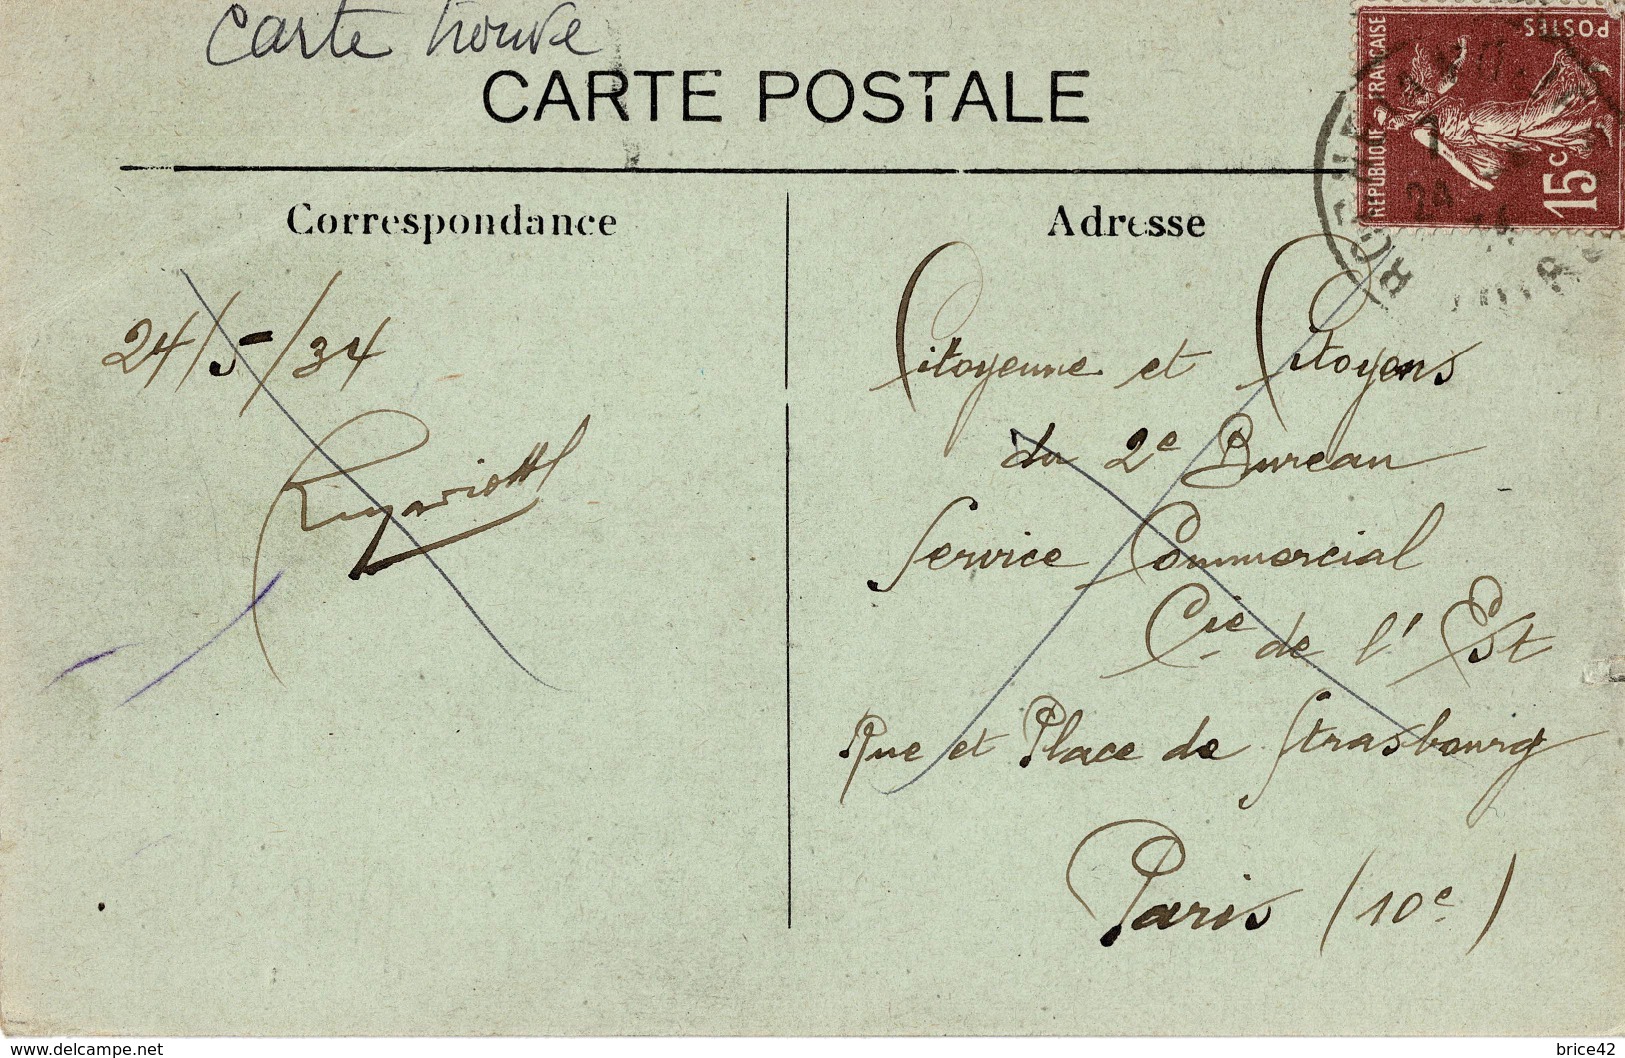 Carte trouve
CARTE POSTALE
REPUBLIQUE FRANÇAISE
POSTES
15c
Correspondance
Adresse
24/5/34
Citoyenne et Citoyens
du 2e Bureau
Service Commercial
Cie de l'Est
Rue et Place de Strasbourg
Paris (10e)
www.delcampe.net
brice42